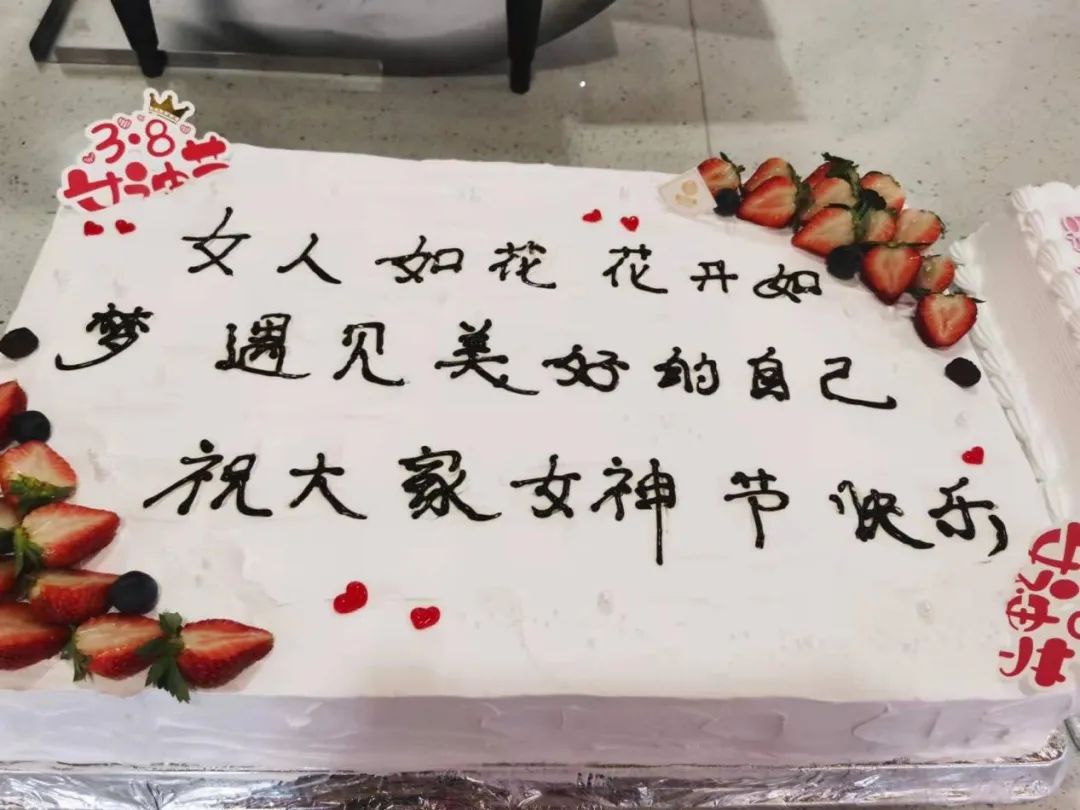 3·8
女神节
女人如花 花开如
梦 遇见美好的自己
祝大家女神节快乐